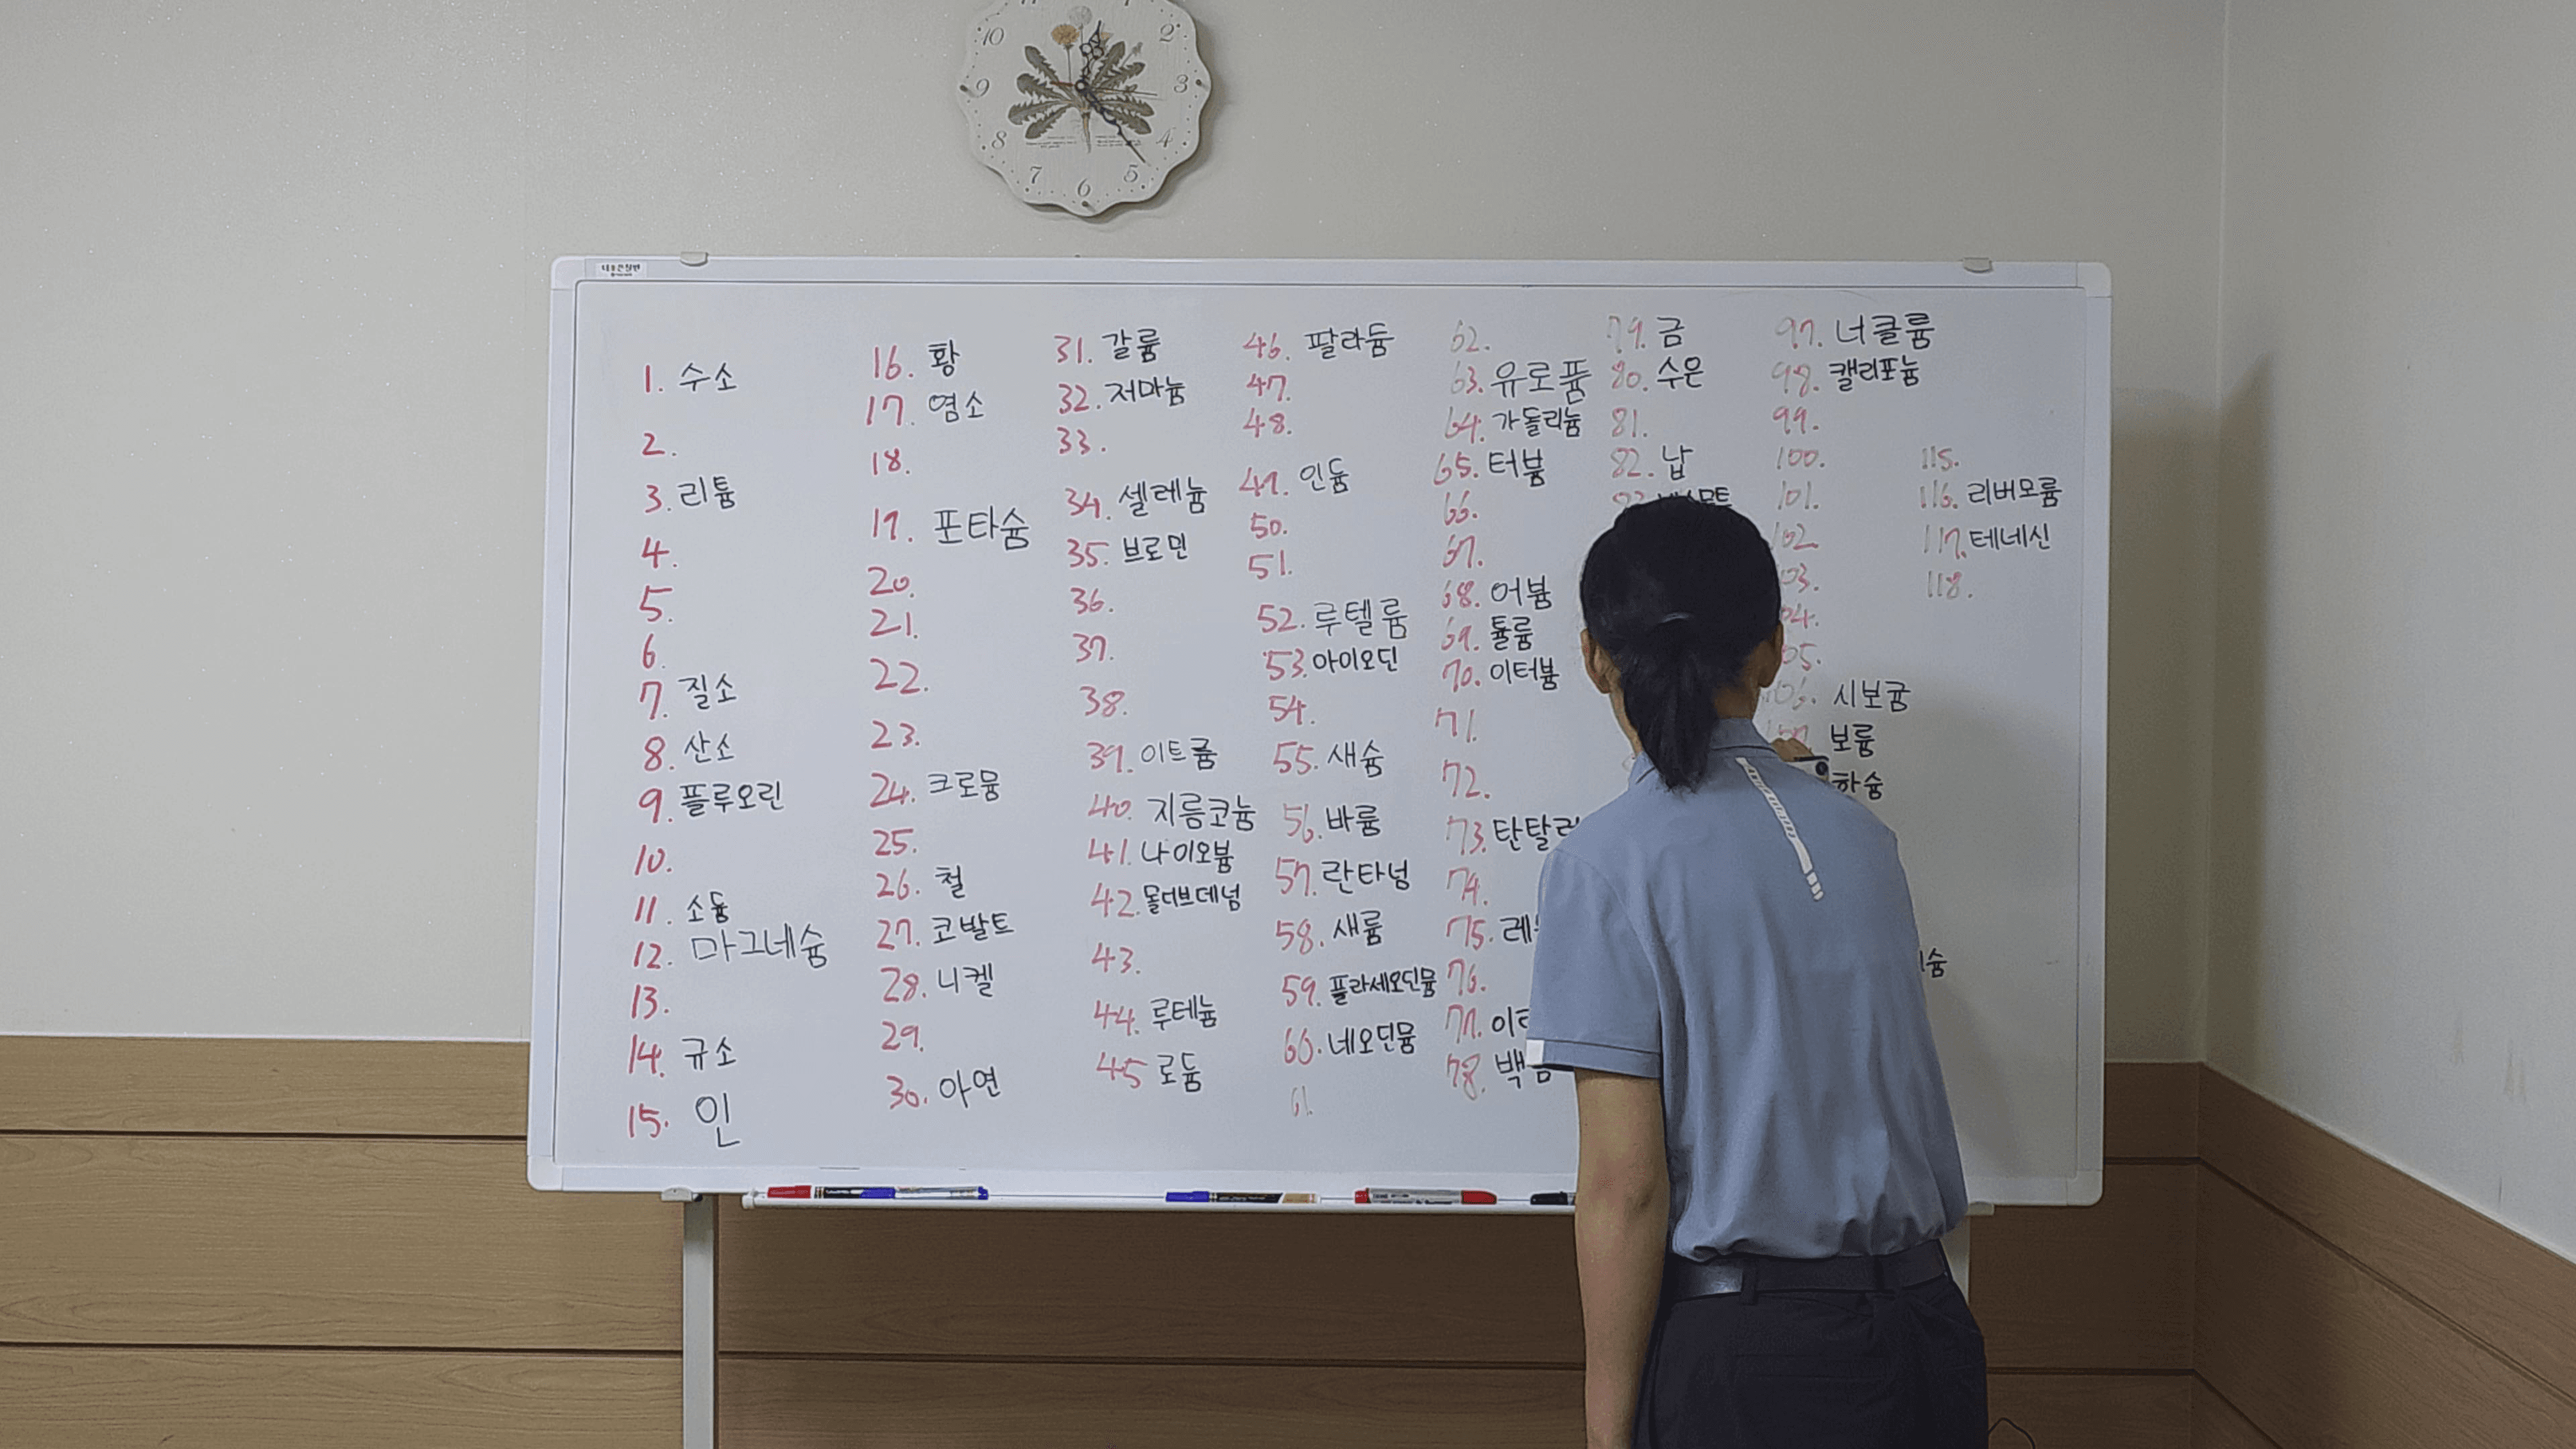 1. 수소
2.
3. 리튬
4.
5.
6.
7. 질소
8. 산소
9. 플루오린
10.
11. 소듐
12. 마그네슘
13.
14. 규소
15. 인
16. 황
17. 염소
18.
19. 포타슘
20.
21.
22.
23.
24. 크로뮴
25.
26. 철
27. 코발트
28. 니켈
29.
30. 아연
31. 갈륨
32. 저마늄
33.
34. 셀레늄
35. 브로민
36.
37.
38.
39. 이트륨
40. 지름코늄
41. 나이오븀
42. 몰더브데넘
43.
44. 루테늄
45 로듐
46. 팔라듐
47.
48.
49. 인듐
50.
51.
52. 루텔륨
53. 아이오딘
54.
55. 새슘
56. 바륨
57. 란타넘
58. 새륨
59. 플라세오딘뮴
60. 네오딘뮴
61.
62.
63. 유로퓸
64. 가돌리늄
65. 터븀
66.
67.
68. 어븀
69. 튤륨
70. 이터븀
71.
72.
73. 탄탈
74.
75. 레
76.
77. 이
78. 백금
79. 금
80. 수은
81.
82. 납
97. 너클륨
98. 캘리포늄
99.
100.
101.
102
03.
04.
05.
106. 시보귬
107. 보륨
하슘
슘
115.
116. 리버모륨
117. 테네신
118.
10
2
3
4
5
6
7
8
9